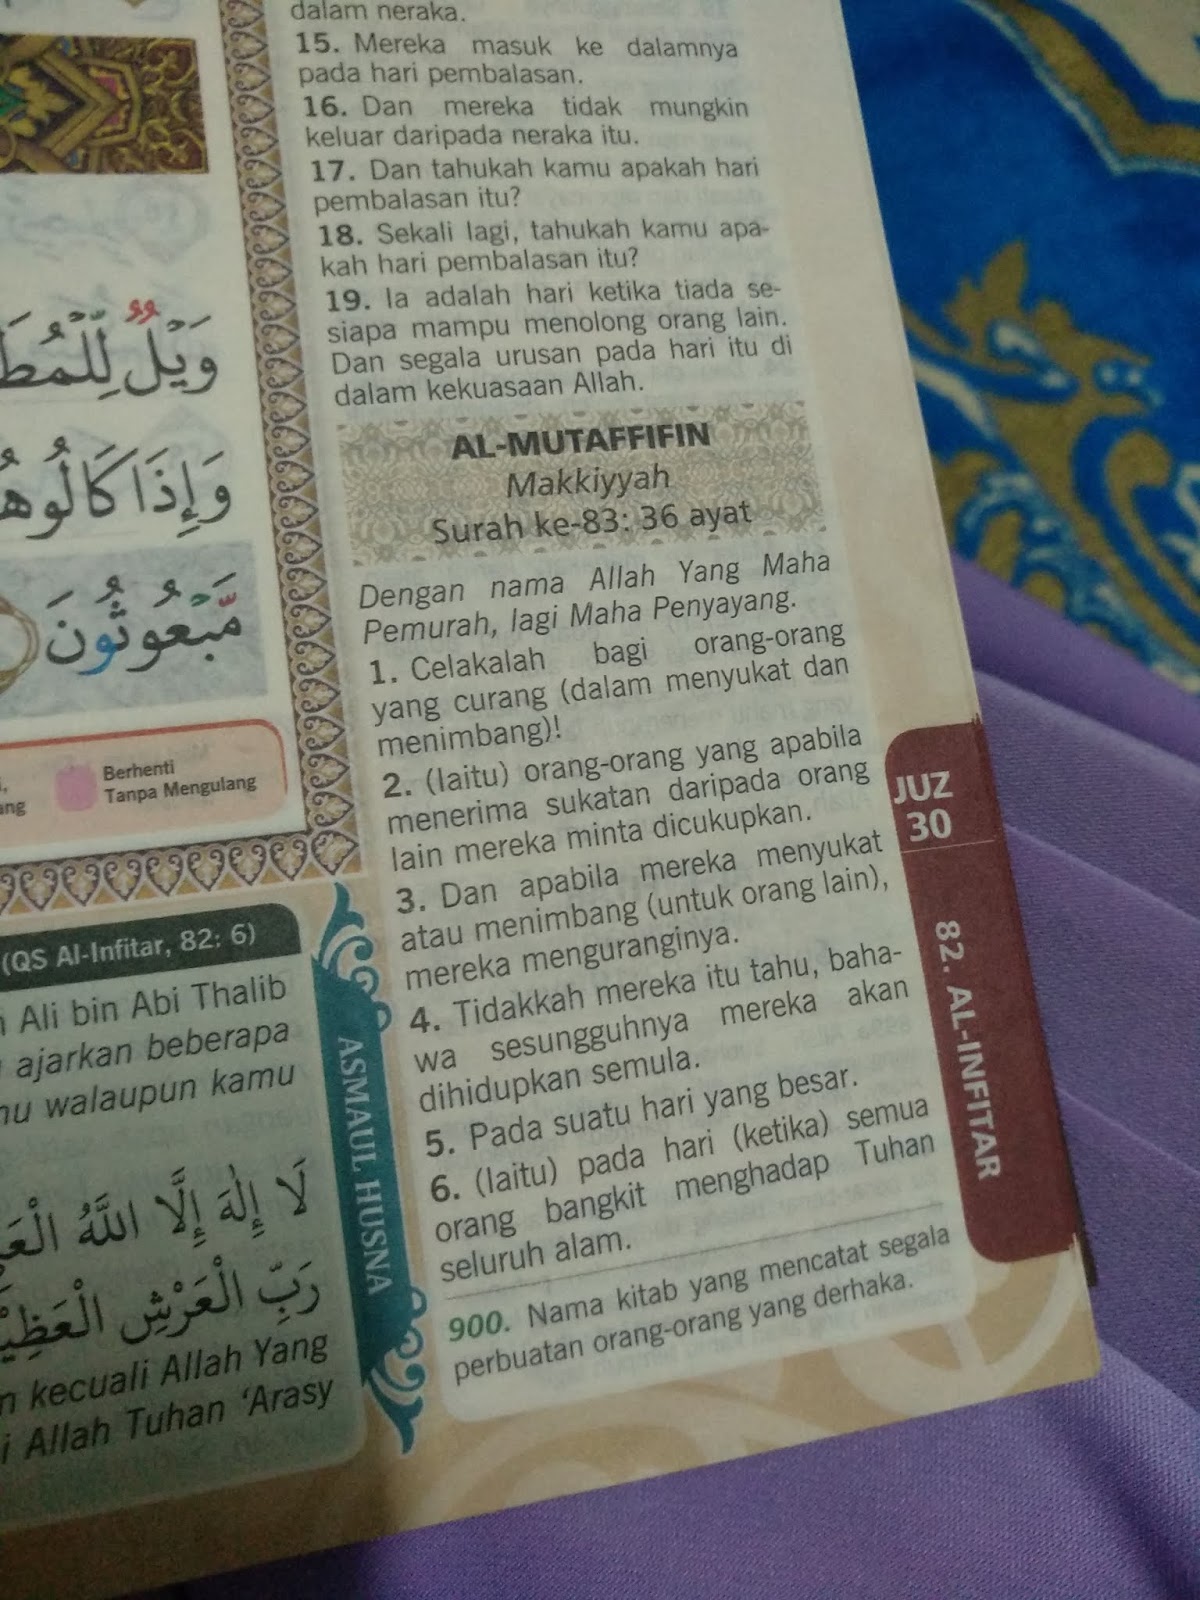 dalam neraka.
15. Mereka masuk ke dalamnya
pada hari pembalasan.
16. Dan mereka tidak mungkin
keluar daripada neraka itu.
17. Dan tahukah kamu apakah hari
pembalasan itu?
18. Sekali lagi, tahukah kamu apa-
kah hari pembalasan itu?
19. Ia adalah hari ketika tiada se-
siapa mampu menolong orang lain.
Dan segala urusan pada hari itu di
dalam kekuasaan Allah.
AL-MUTAFFIFIN
Makkiyyah
Surah ke-83: 36 ayat
Dengan nama Allah Yang Maha
Pemurah, lagi Maha Penyayang.
1. Celakalah bagi orang-orang
yang curang (dalam menyukat dan
menimbang)!
2. (Iaitu) orang-orang yang apabila
menerima sukatan daripada orang
lain mereka minta dicukupkan.
3. Dan apabila mereka menyukat
atau menimbang (untuk orang lain),
mereka menguranginya.
4. Tidakkah mereka itu tahu, baha-
wa sesungguhnya mereka akan
dihidupkan semula.
5. Pada suatu hari yang besar.
6. (Iaitu) pada hari (ketika) semua
orang bangkit menghadap Tuhan
seluruh alam.
900. Nama kitab yang mencatat segala
perbuatan orang-orang yang derhaka.
JUZ
30
82. AL-INFITAR
وَيْلٌ
وَإِذَا كَالُو
مَّبْعُوثُونَ
Berhenti
Tanpa Mengulang
(QS Al-Infitar, 82: 6)
Ali bin Abi Thalib
ajarkan beberapa
walaupun kamu
لَا إِلٰهَ إِلَّا اللَّهُ
رَبِّ الْعَرْشِ
kecuali Allah Yang
Allah Tuhan ‘Arasy
ASMAUL HUSNA